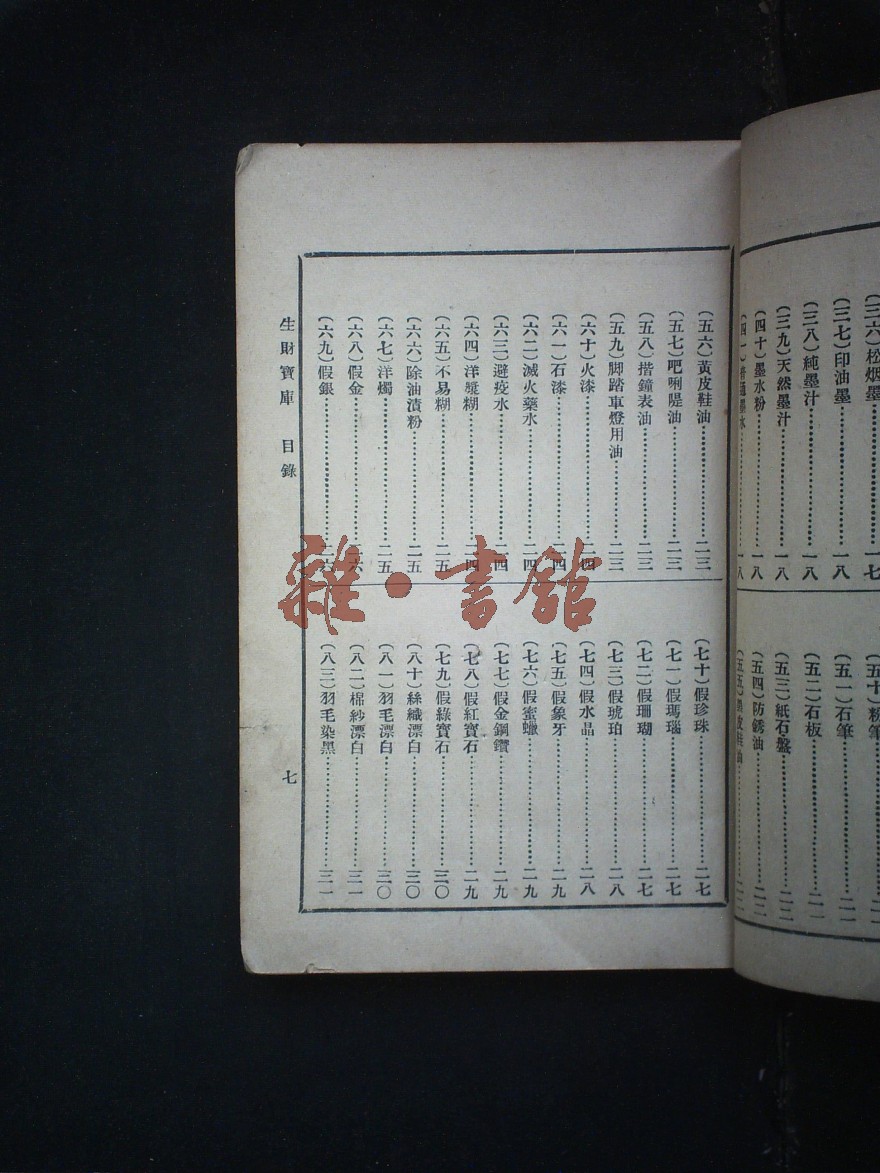 (三六)松烟墨……一七
(三七)印油墨……一八
(三八)純墨汁……一八
(三九)天然墨汁……一八
(四十)墨水粉……一八
(四一)普通墨水……一八
(五十)粉筆……二一
(五一)石筆……二一
(五二)石板……二一
(五三)紙石盤……二二
(五四)防銹油……二二
(五五)黑皮鞋油……二二
(五六)黃皮鞋油……二三
(五七)吧唎隄油……二三
(五八)揩鐘表油……二三
(五九)脚踏車燈用油……二三
(六十)火漆……二四
(六一)石漆……二四
(六二)滅火藥水……二四
(六三)避疫水……二四
(六四)洋漿糊……二四
(六五)不易糊……二五
(六六)除油漬粉……二五
(六七)洋燭……二五
(六八)假金……二六
(六九)假銀……二六
(七十)假珍珠……二七
(七一)假瑪瑙……二七
(七二)假珊瑚……二七
(七三)假琥珀……二八
(七四)假水晶……二八
(七五)假象牙……二九
(七六)假蜜蠟……二九
(七七)假金鋼鑽……二九
(七八)假紅寶石……二九
(七九)假綠寶石……三〇
(八十)絲織漂白……三〇
(八一)羽毛漂白……三〇
(八二)棉紗漂白……三一
(八三)羽毛染黑……三一
生財寶庫 目錄
七
雜·書館